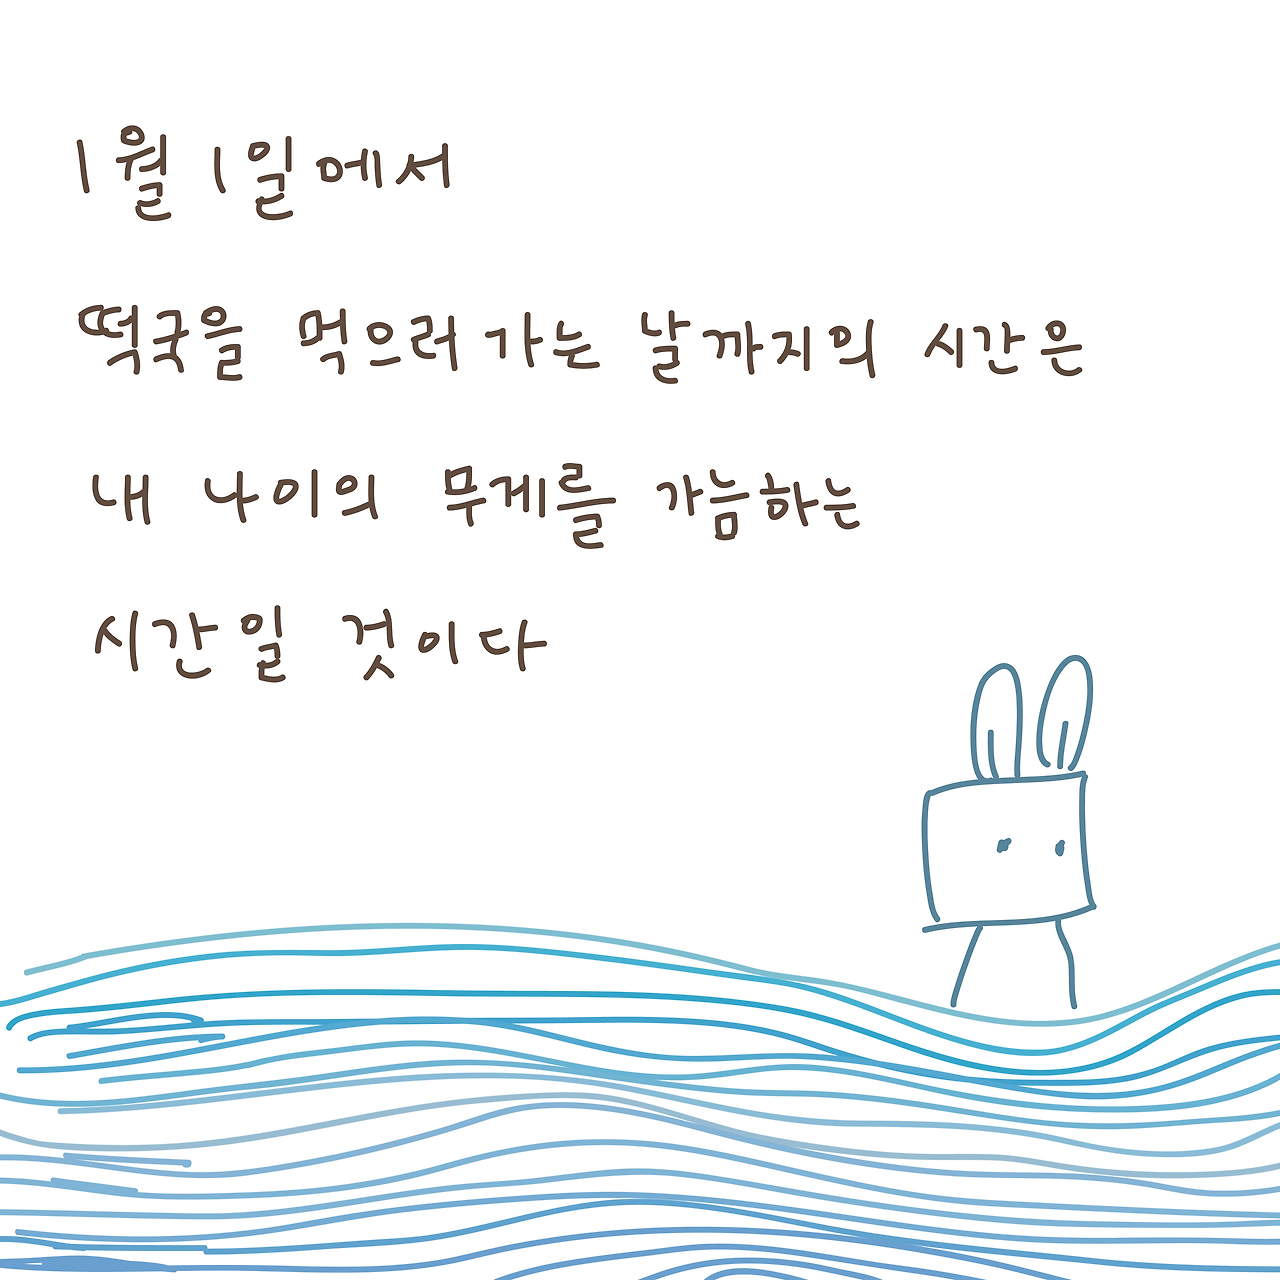 1월 1일에서
떡국을 먹으러 가는 날까지의 시간은
내 나이의 무게를 가늠하는
시간일 것이다